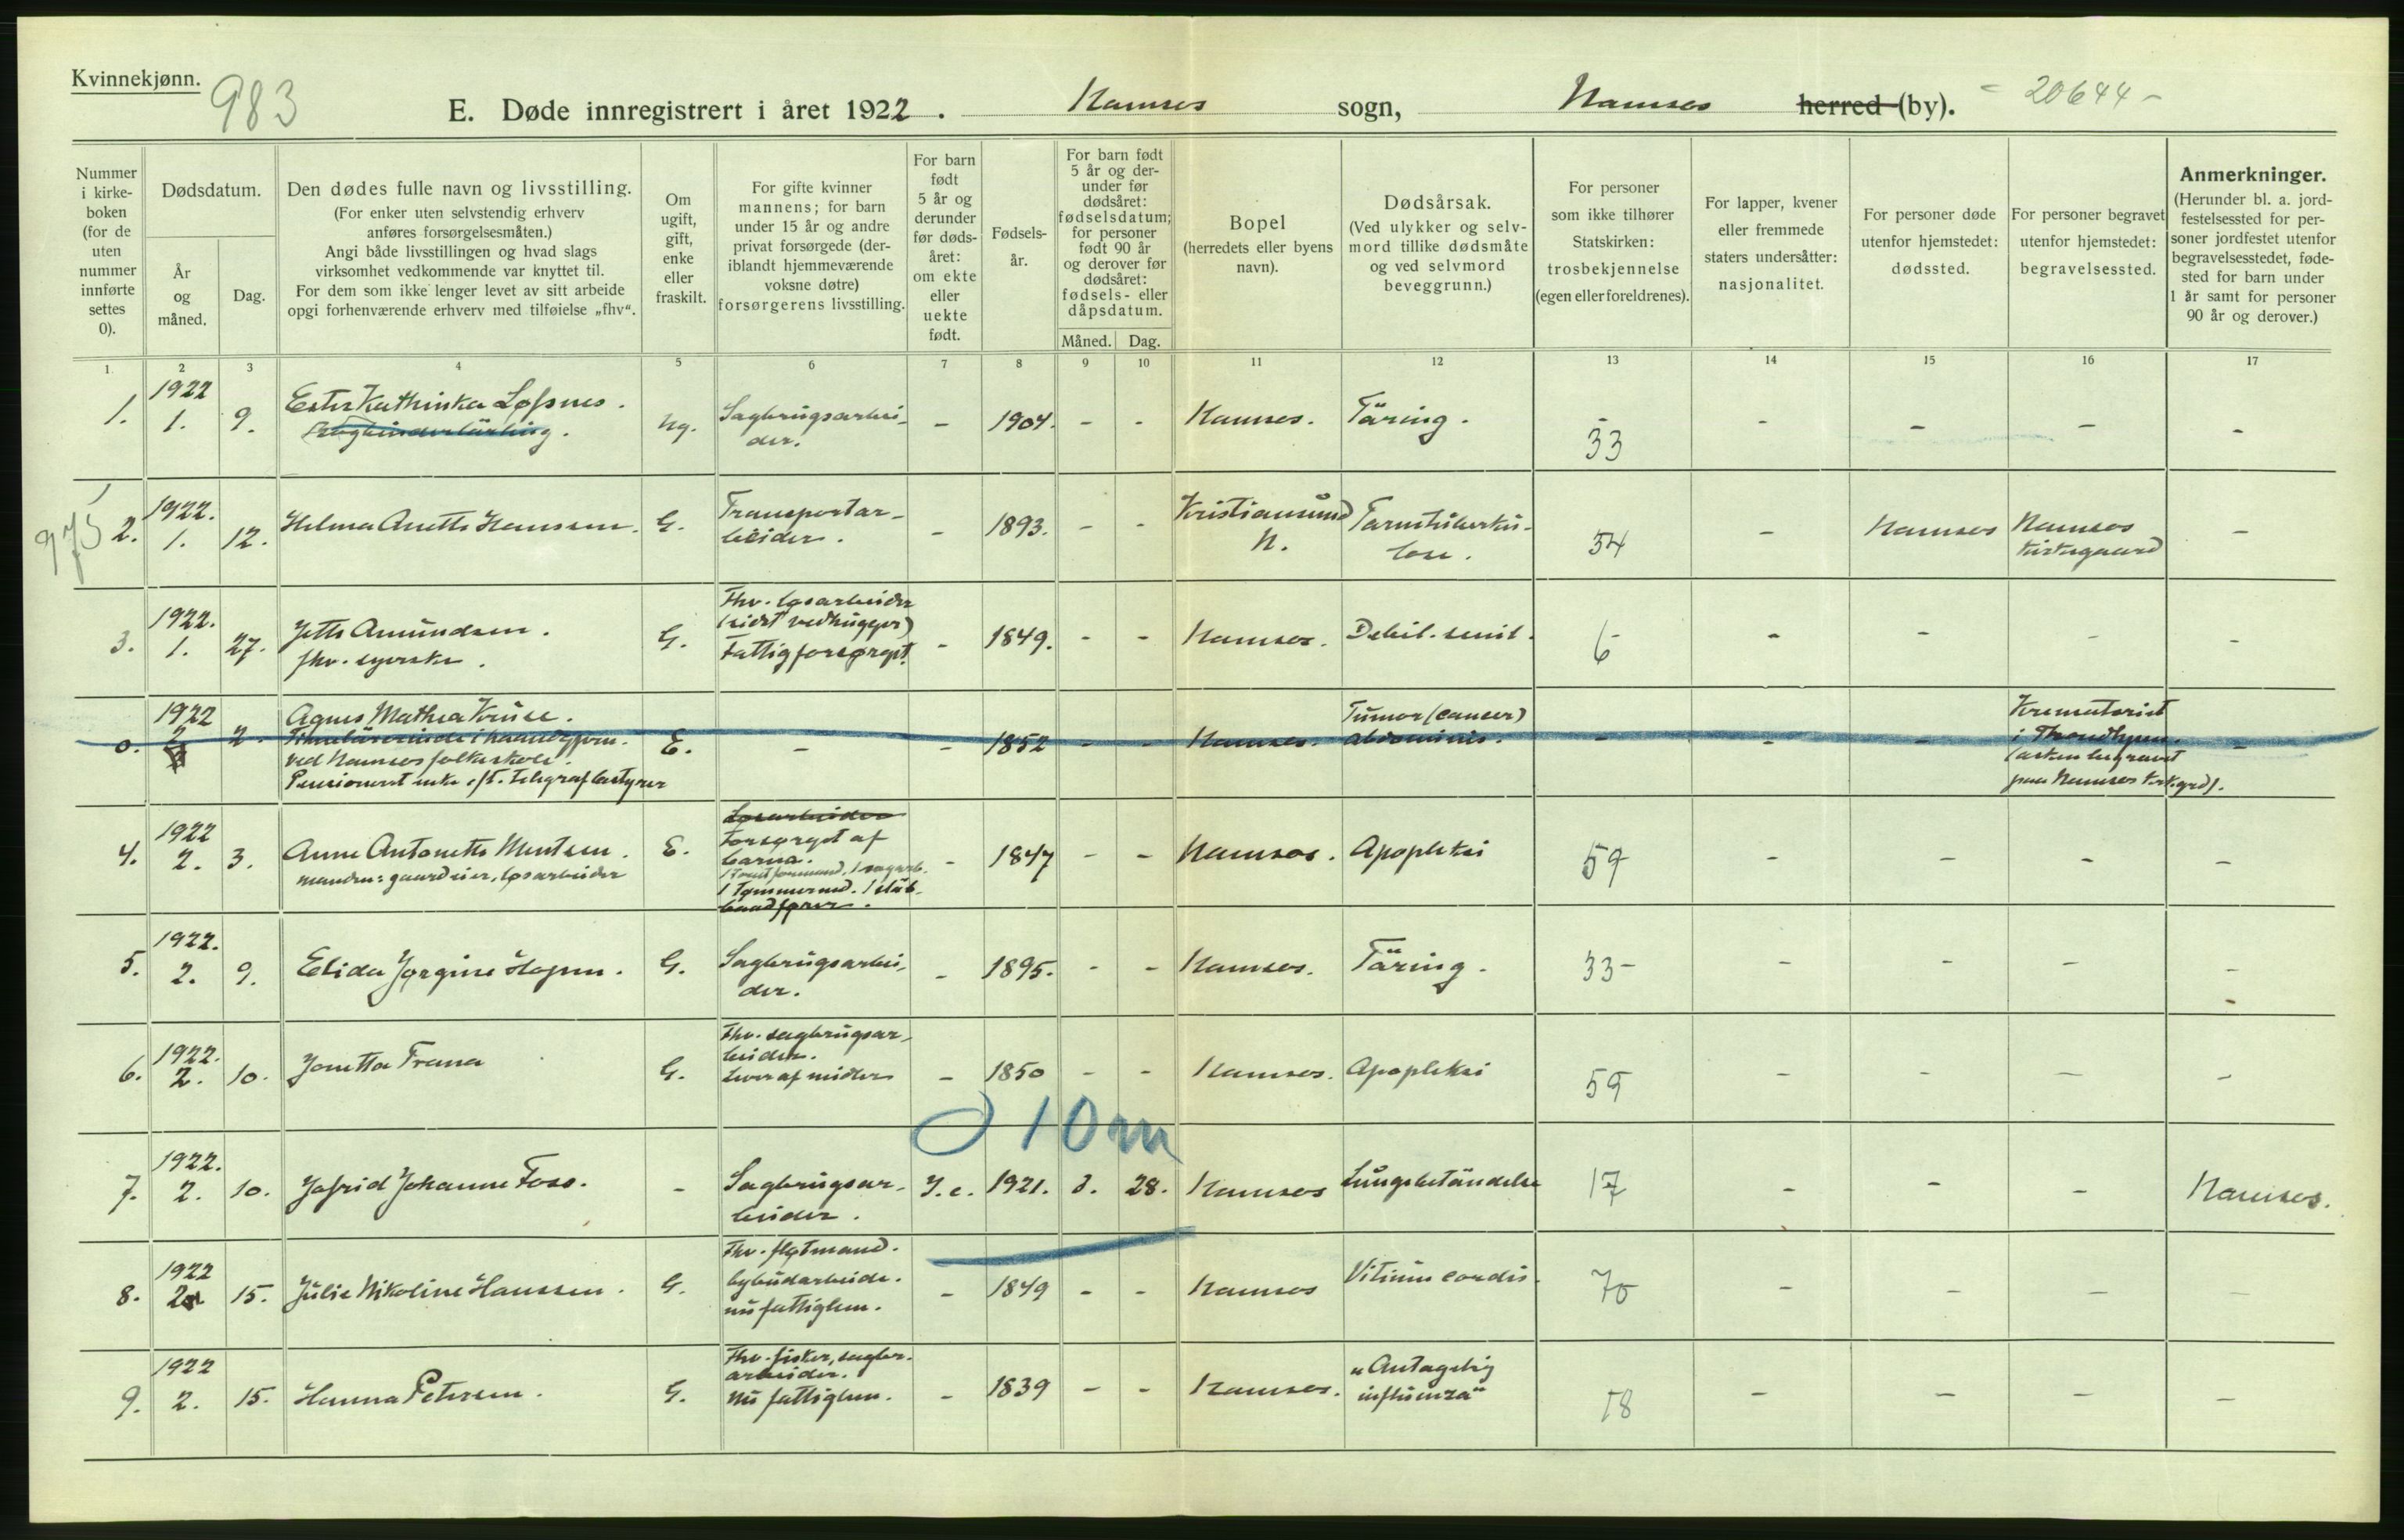 Kvinnekjønn.
983
E. Døde innregistrert i året 1922. Namsos sogn, Namsos herred (by).
- 20644 -
Nummer i kirkeboken (for de uten nummer innførte settes 0).
Dødsdatum.
År og måned.
Dag.
Den dødes fulle navn og livsstilling.
(For enker uten selvstendig erhverv
anføres forsørgelsesmåten.)
Angi både livsstillingen og hvad slags
virksomhet vedkommende var knyttet til.
For dem som ikke lenger levet av sitt arbeide
opgi forhenværende erhverv med tilføielse „fhv“.
Om
ugift,
gift,
enke
eller
fraskilt.
For gifte kvinner
mannens; for barn
under 15 år og andre
privat forsørgede (der-
iblandt hjemmeværende
voksne døtre)
forsørgerens livsstilling.
For barn
født
5 år og
derunder
før døds-
året:
om ekte
eller
uekte
født.
Fødsels-
år.
For barn født
5 år og der-
under før
dødsåret:
fødselsdatum;
for personer
født 90 år
og derover før
dødsåret:
fødsels- eller
dåpsdatum.
Måned. Dag.
Bopel
(herredets eller byens
navn).
Dødsårsak.
(Ved ulykker og selv-
mord tillike dødsmåte
og ved selvmord
beveggrunn.)
For personer
som ikke tilhører
Statskirken:
trosbekjennelse
(egen eller foreldrenes).
For lapper, kvener
eller fremmede
staters undersåtter:
nasjonalitet.
For personer døde
utenfor hjemstedet:
dødssted.
For personer begravet
utenfor hjemstedet:
begravelsessted.
Anmerkninger.
(Herunder bl. a. jord-
festelsessted for per-
soner jordfestet utenfor
begravelsesstedet, føde-
sted for barn under
1 år samt for personer
90 år og derover.)
1 2 3 4 5 6 7 8 9 10 11 12 13 14 15 16 17
1. 1922 1. 9. Ester Kathinka Løfsnes. ug. Sagbrugsarbei-
der. - 1904. - - Namsos. Täring. - 33 - - - -
975
2. 1922. 1. 12. Helma Anette Hanssen. G. Transportar-
beider. - 1893. - - Kristiansund
N. Tarmtuberku-
lose. 54 - Namsos Namsos
kirkegaard -
3. 1922. 1. 27. Jette Amundsen.
fhv. syerske. G. Fhv. løsarbeider
(sidst vedhugger)
Fattigforsørget. - 1849. - - Namsos. Debil. senil. 6 - - - -
0. 1922 2. 2. Agnes Mathea Kruse.
Timelärerinde i haandgjern.
ved Namsos folkeskole.
Pensionert enke eft. telegrafbestyrer E. - - 1852 - - Namsos. Tumor (cancer)
abdominis. - - - Krematoriet
i Trondhjem.
(asken begravet
paa Namsos kirkgrd). -
4. 1922 2. 3. Anne Antonette Mentsen.
manden: gaardeier, løsarbeider E. Løsarbeider
Forsørget af
barna.
1 Tømmermd.
- 1847 - - Namsos. Apopleksi 59 - - - -
5. 1922. 2. 9. Elida Jørgine Hagen. G. Sagbrugsarbei-
der. - 1895. - - Namsos. Täring. 33 - - - - -
6. 1922. 2. 10. Jonetta Frana G. Fhv. sagbrugsar-
beider.
Lever af midler - 1850 - - Namsos. Apopleksi 59 - - - -
10 m
7. 1922. 2. 10. Jofrid Johanne Foss. - Sagbrugsar-
beider. I. e. 1921. 3. 28. Namsos Lungebetändelse 17 - - - Namsos.
8. 1922 2. 15. Julie Nikoline Hanssen. G. Fhv. fløtmand.
bybudarbeide.
nu fattiglem. - 1849 - - Namsos Vitium cordis. 70 - - - -
9. 1922 2. 15. Hanna Petersen. G. Fhv. fisker, sagbr.
arbeider.
Nu fattiglem. - 1839 - - Namsos. „Antagelig
influenza“ 18 - - - -